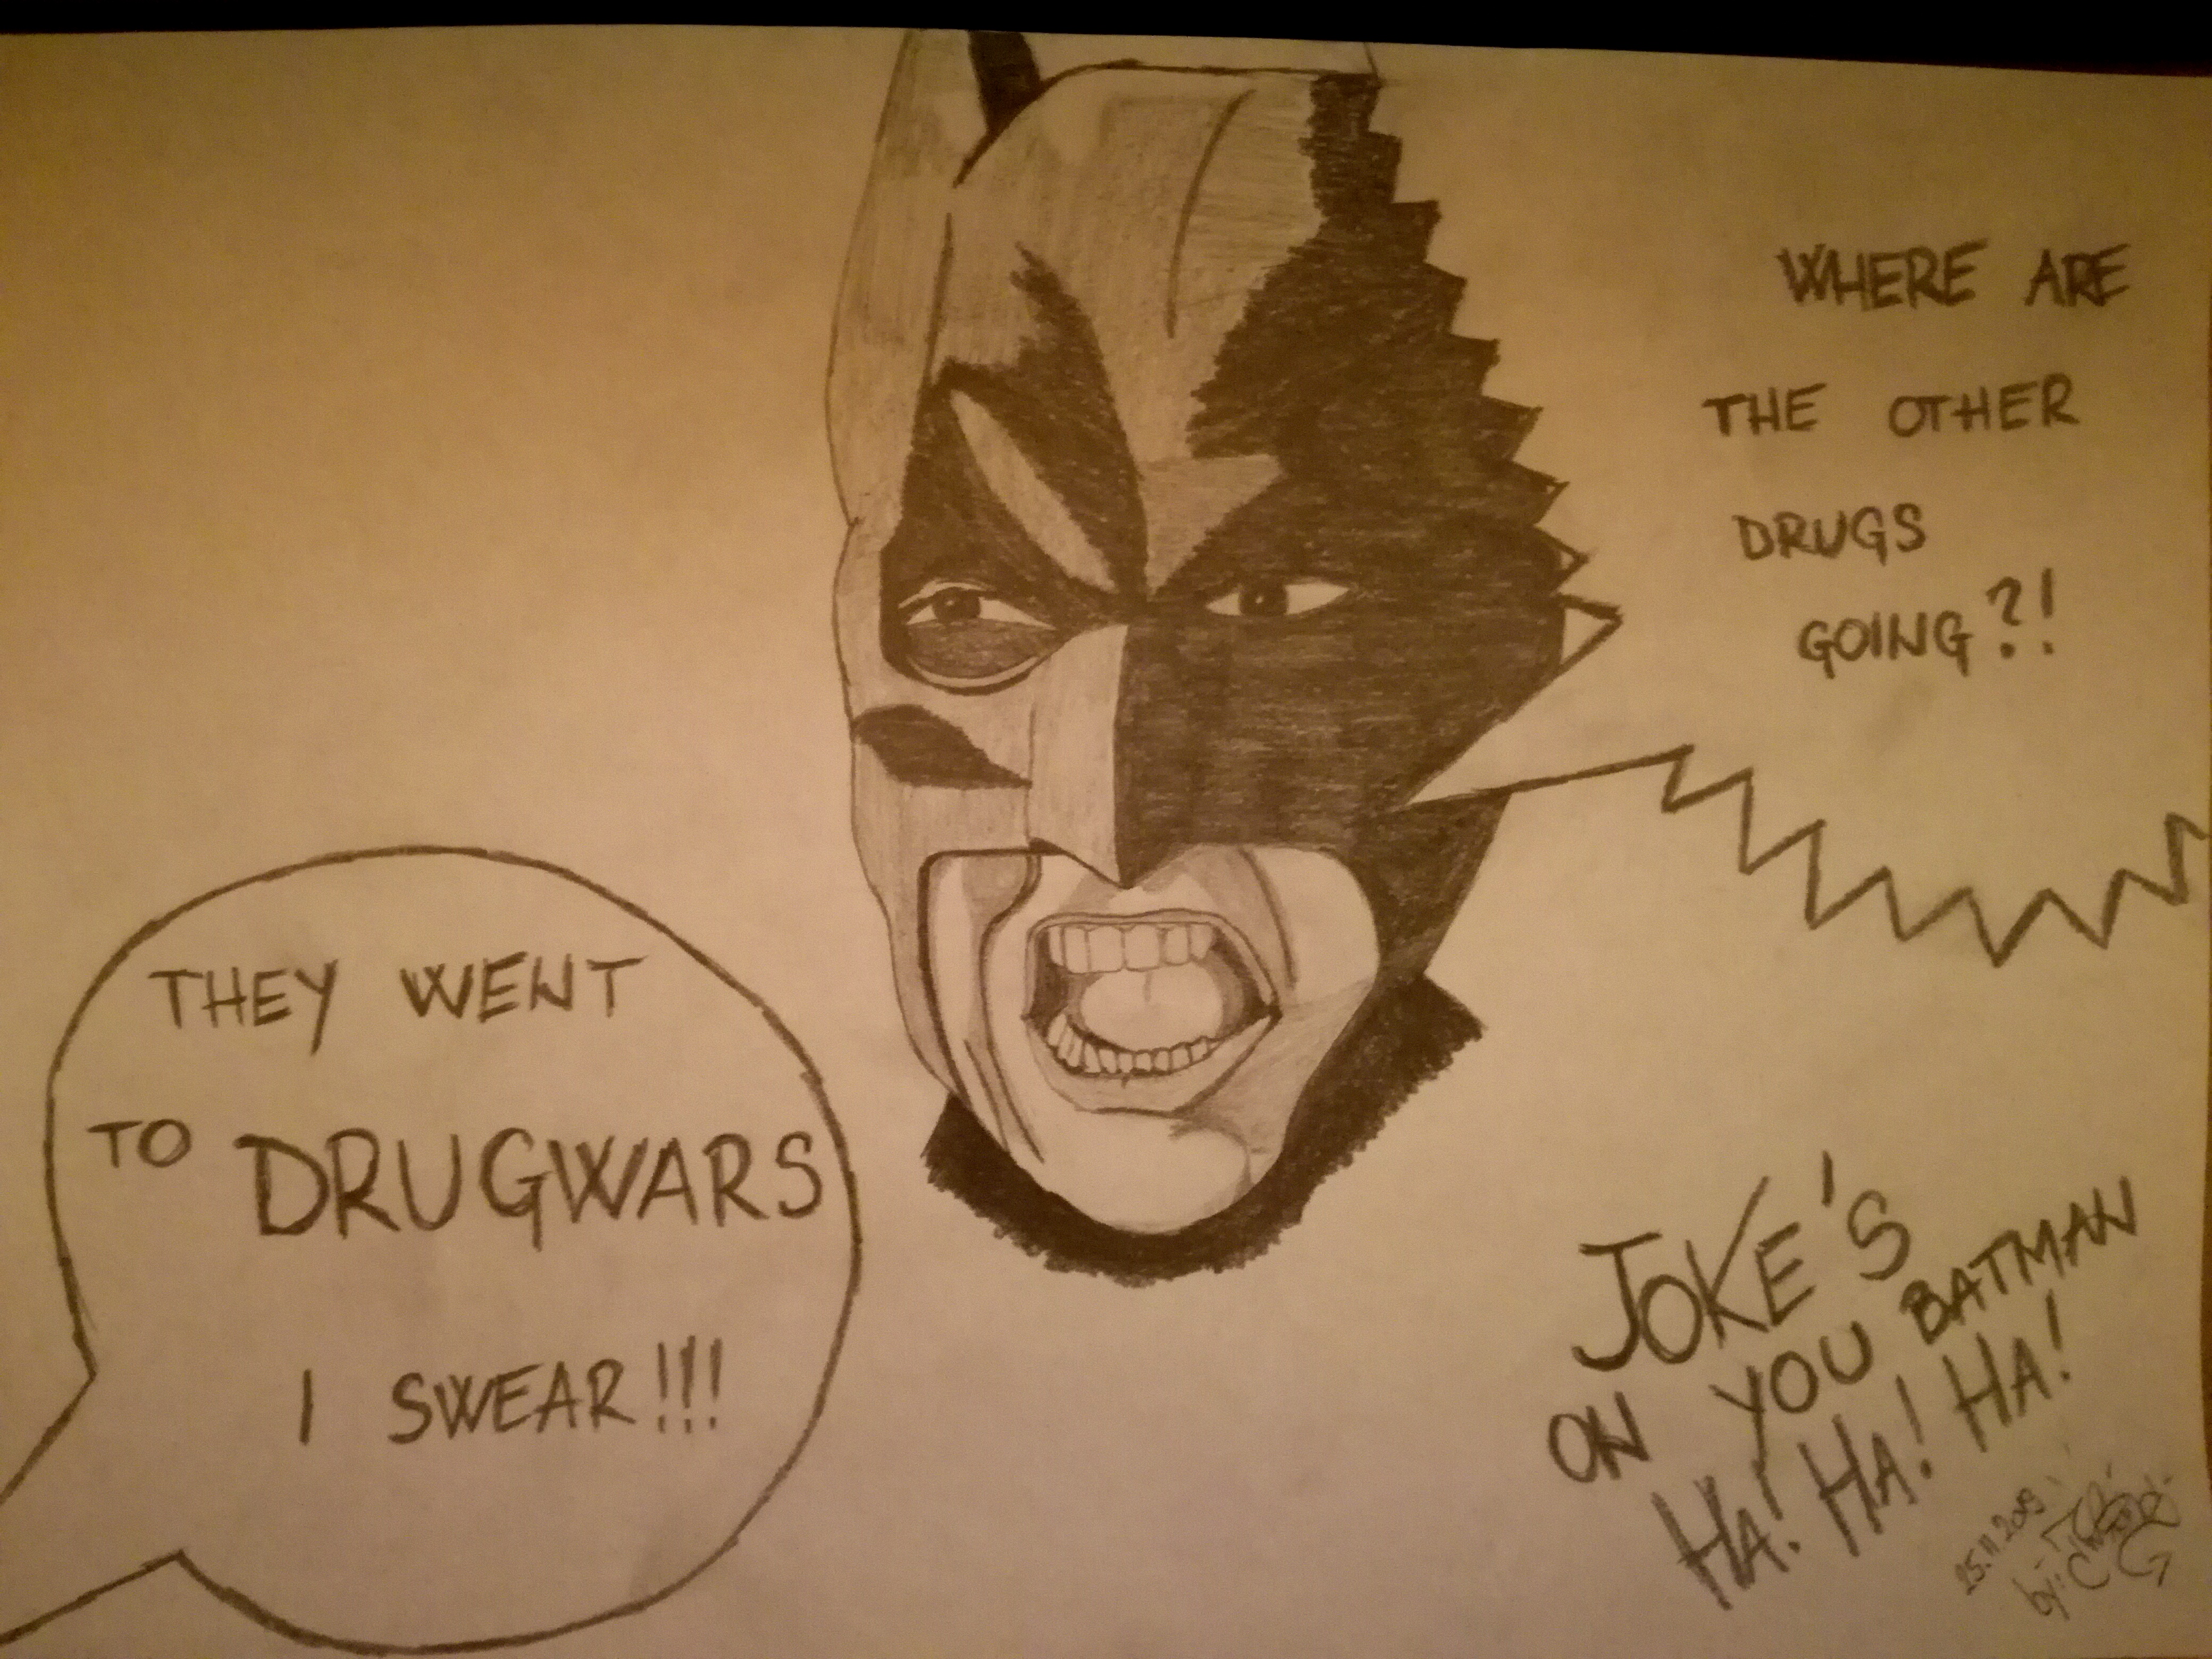 WHERE ARE
THE OTHER
DRUGS
GOING?!
THEY WENT
TO DRUGWARS
I SWEAR!!!
JOKE'S
ON YOU BATMAN
HA! HA! HA!
25.11.2019
by: